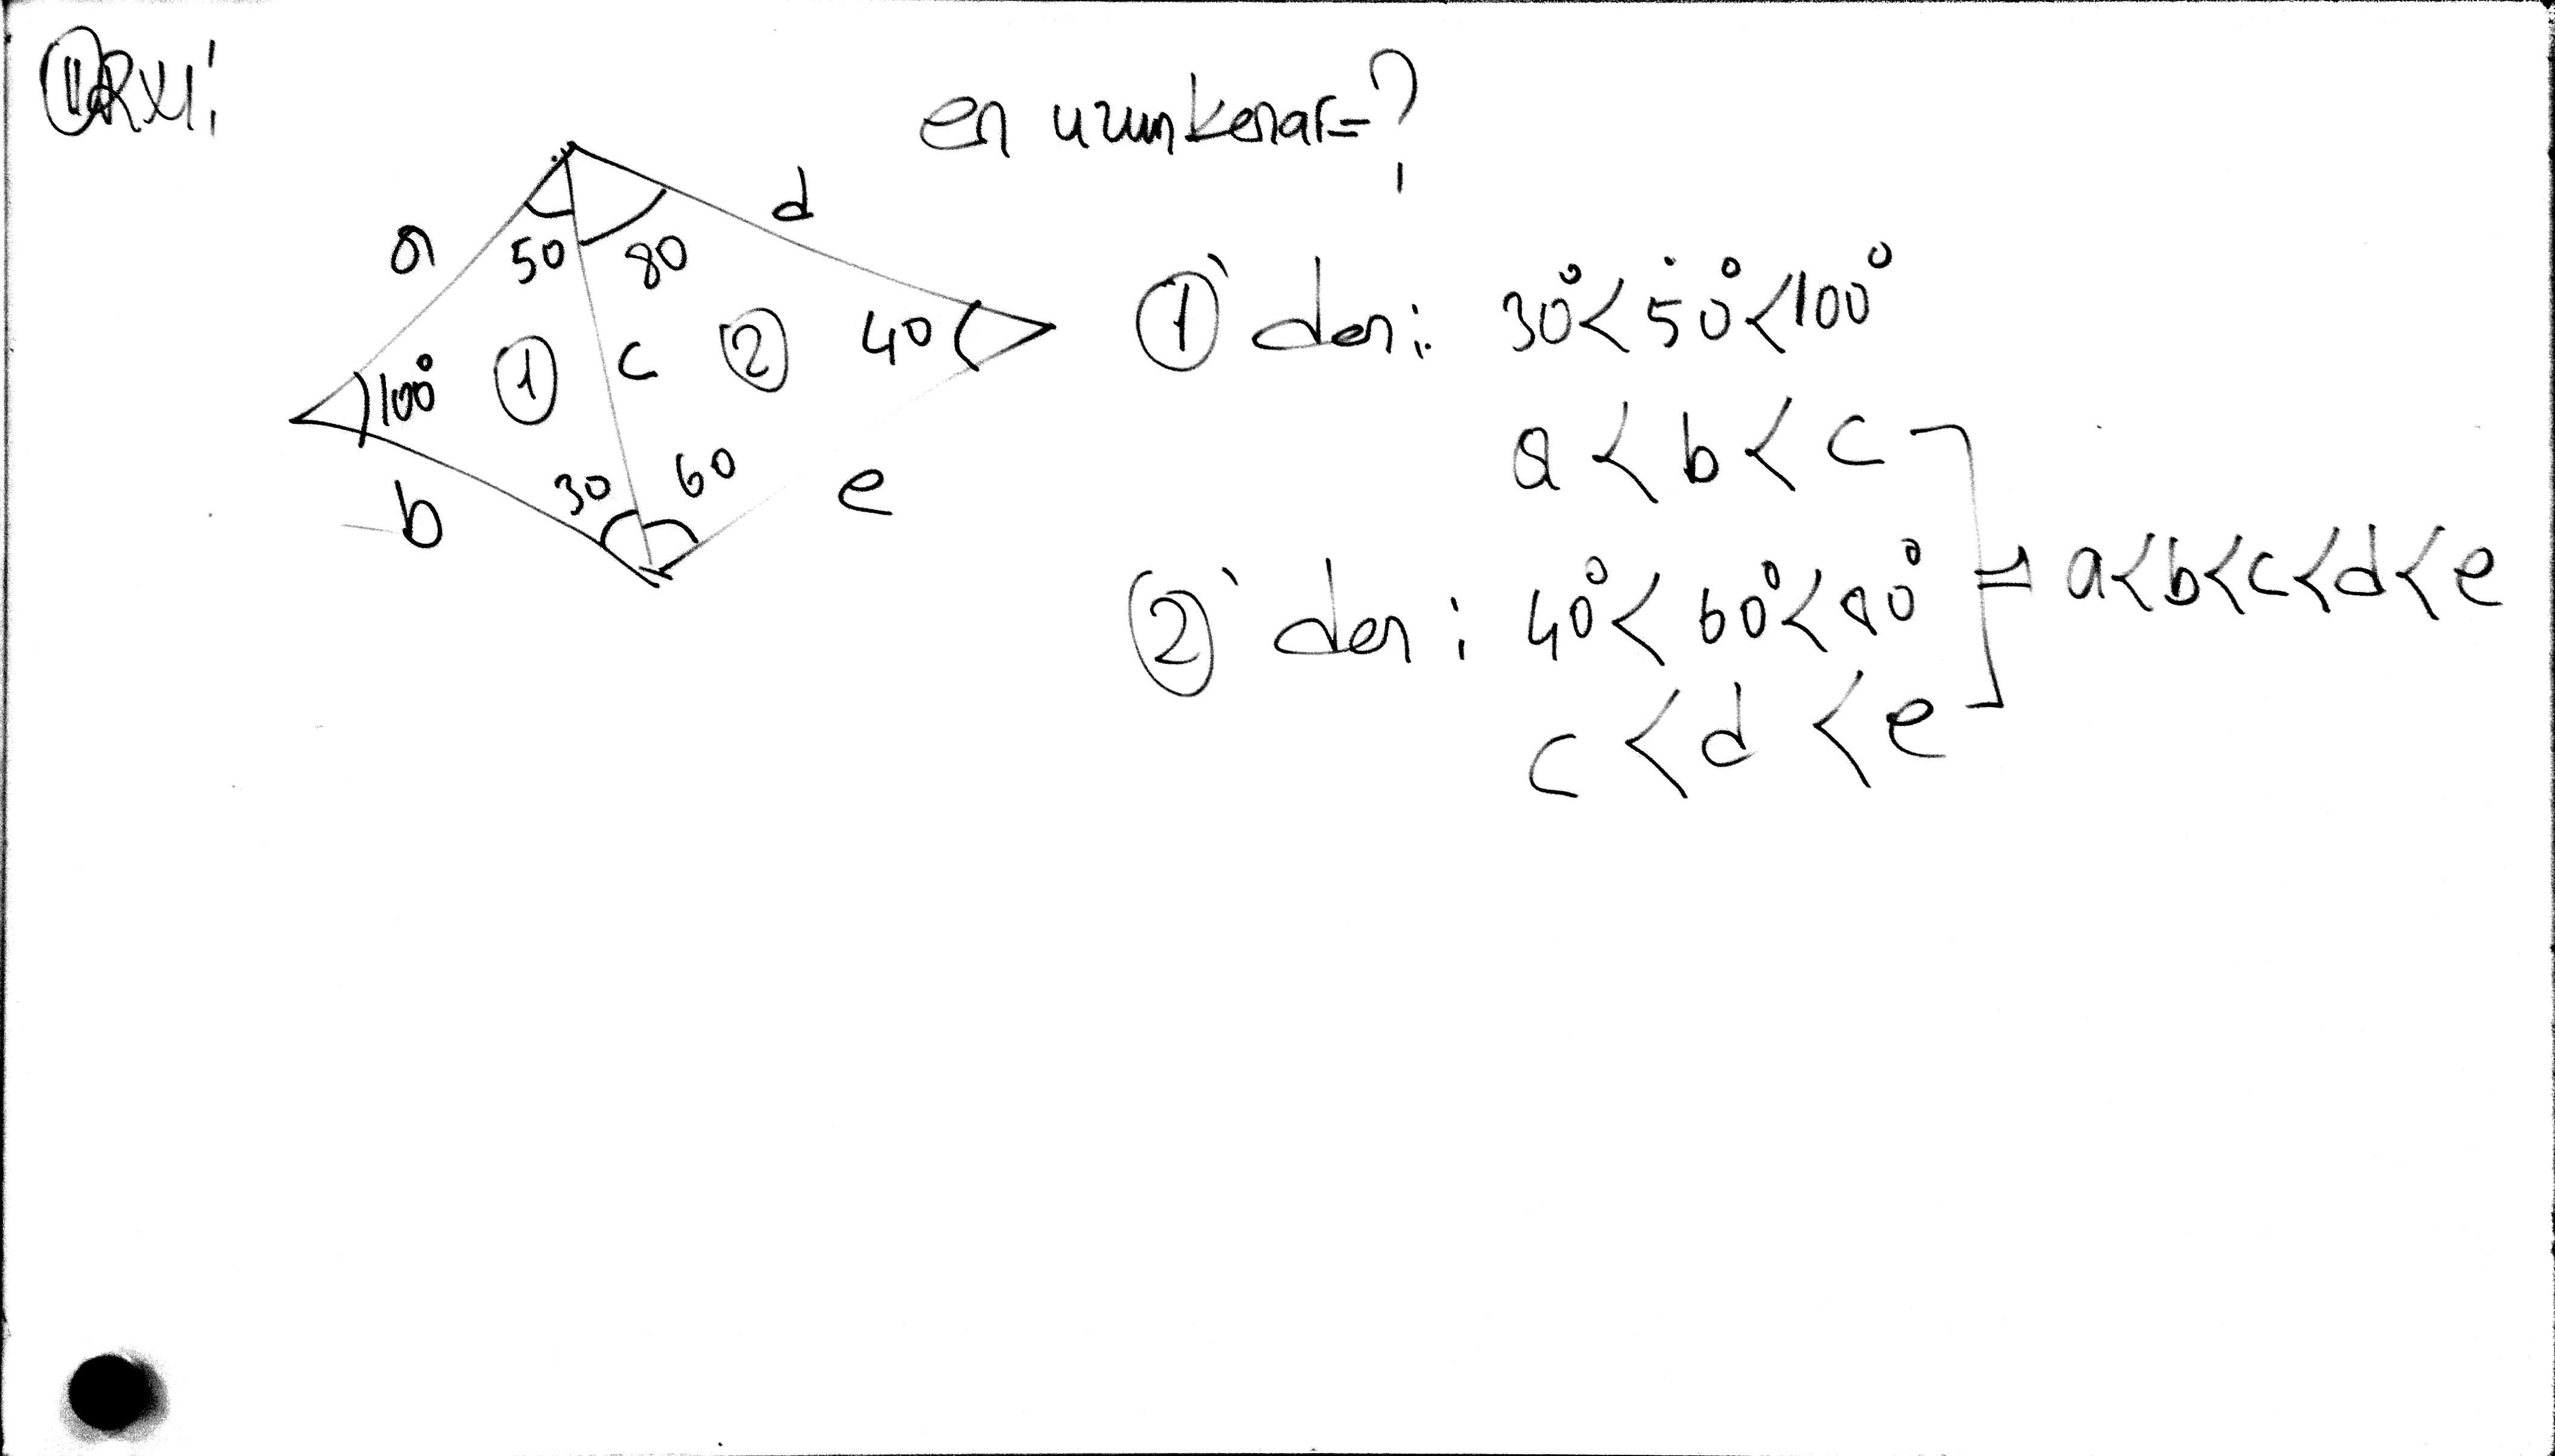 en uzun kenar=?
a
d
50 80
100° ① c ② 40
30 60
b
e
①'den: 30°<50°<100°
a < b < c
②'den: 40°<60°<80°
c < d < e
⇒ a<b<c<d<e